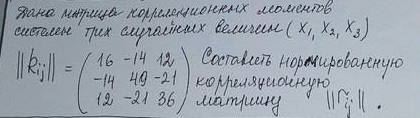 Дана матрица корреляционных моментов
системы трех случайных величин (X₁, X₂, X₃)
||kᵢⱼ|| = ( 16 -14 12 ) Составить нормированную
( -14 49 -21 ) корреляционную
( 12 -21 36 ) матрицу ||rᵢⱼ||.